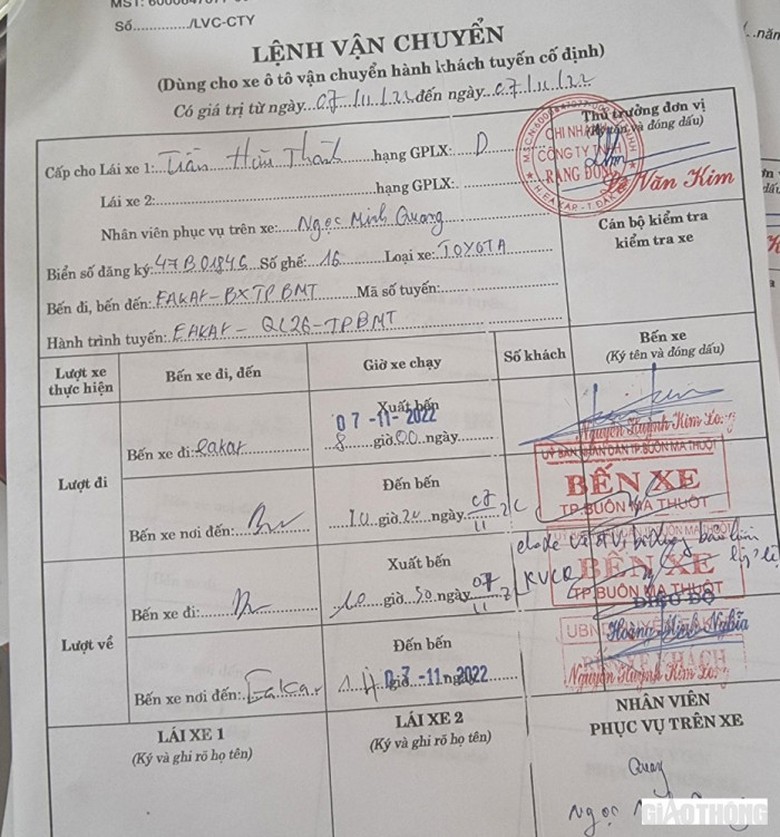 MST: 6000
Số............./LVC-CTY
LỆNH VẬN CHUYỂN
(Dùng cho xe ô tô vận chuyển hành khách tuyến cố định)
Có giá trị từ ngày 07/11/22 đến ngày 07/11/22
...năm
Thủ trưởng đơn vị
(Ký tên và đóng dấu)
CHI NHÁNH
CÔNG TY TNHH
RẠNG ĐÔNG
H.EA KAR - T.ĐẮK
Lê Văn Kim
Cấp cho Lái xe 1: Trần Hữu Thành hạng GPLX: D
Lái xe 2: hạng GPLX:
Nhân viên phục vụ trên xe: Ngọc Minh Quang
Cán bộ kiểm tra
kiểm tra xe
Biển số đăng ký: 47B01846 Số ghế: 16 Loại xe: TOYOTA
Bến đi, bến đến: EAKAR - BXTPBMT Mã số tuyến:
Hành trình tuyến: EAKAR - QL26 - TPBMT
Lượt xe thực hiện
Bến xe đi, đến
Giờ xe chạy
Số khách
Bến xe
(Ký tên và đóng dấu)
Lượt đi
Xuất bến
07 -11- 2022
Bến xe đi: Eakar 8 giờ 00 ngày
Nguyễn Huỳnh Kim Long
Đến bến
Bến xe nơi đến: 10 giờ 20 ngày 07/11
UỶ BAN NHÂN DÂN TP.BUÔN MA THUỘT
BẾN XE
TP.BUÔN MA THUỘT
Lượt về
Xuất bến
Bến xe đi: 10 giờ 30 ngày 07/11
KVCQ
BẾN XE
TP.BUÔN MA THUỘT
ĐIỀU ĐỘ
Hoàng Minh Nghĩa
Đến bến
Bến xe nơi đến: Eakar giờ ngày
07 -11- 2022
BẾN XE KHÁCH
Nguyễn Huỳnh Kim Long
LÁI XE 1
(Ký và ghi rõ họ tên)
LÁI XE 2
(Ký và ghi rõ họ tên)
NHÂN VIÊN
PHỤC VỤ TRÊN XE
Quang
Ngọc
GIAOTHÔNG